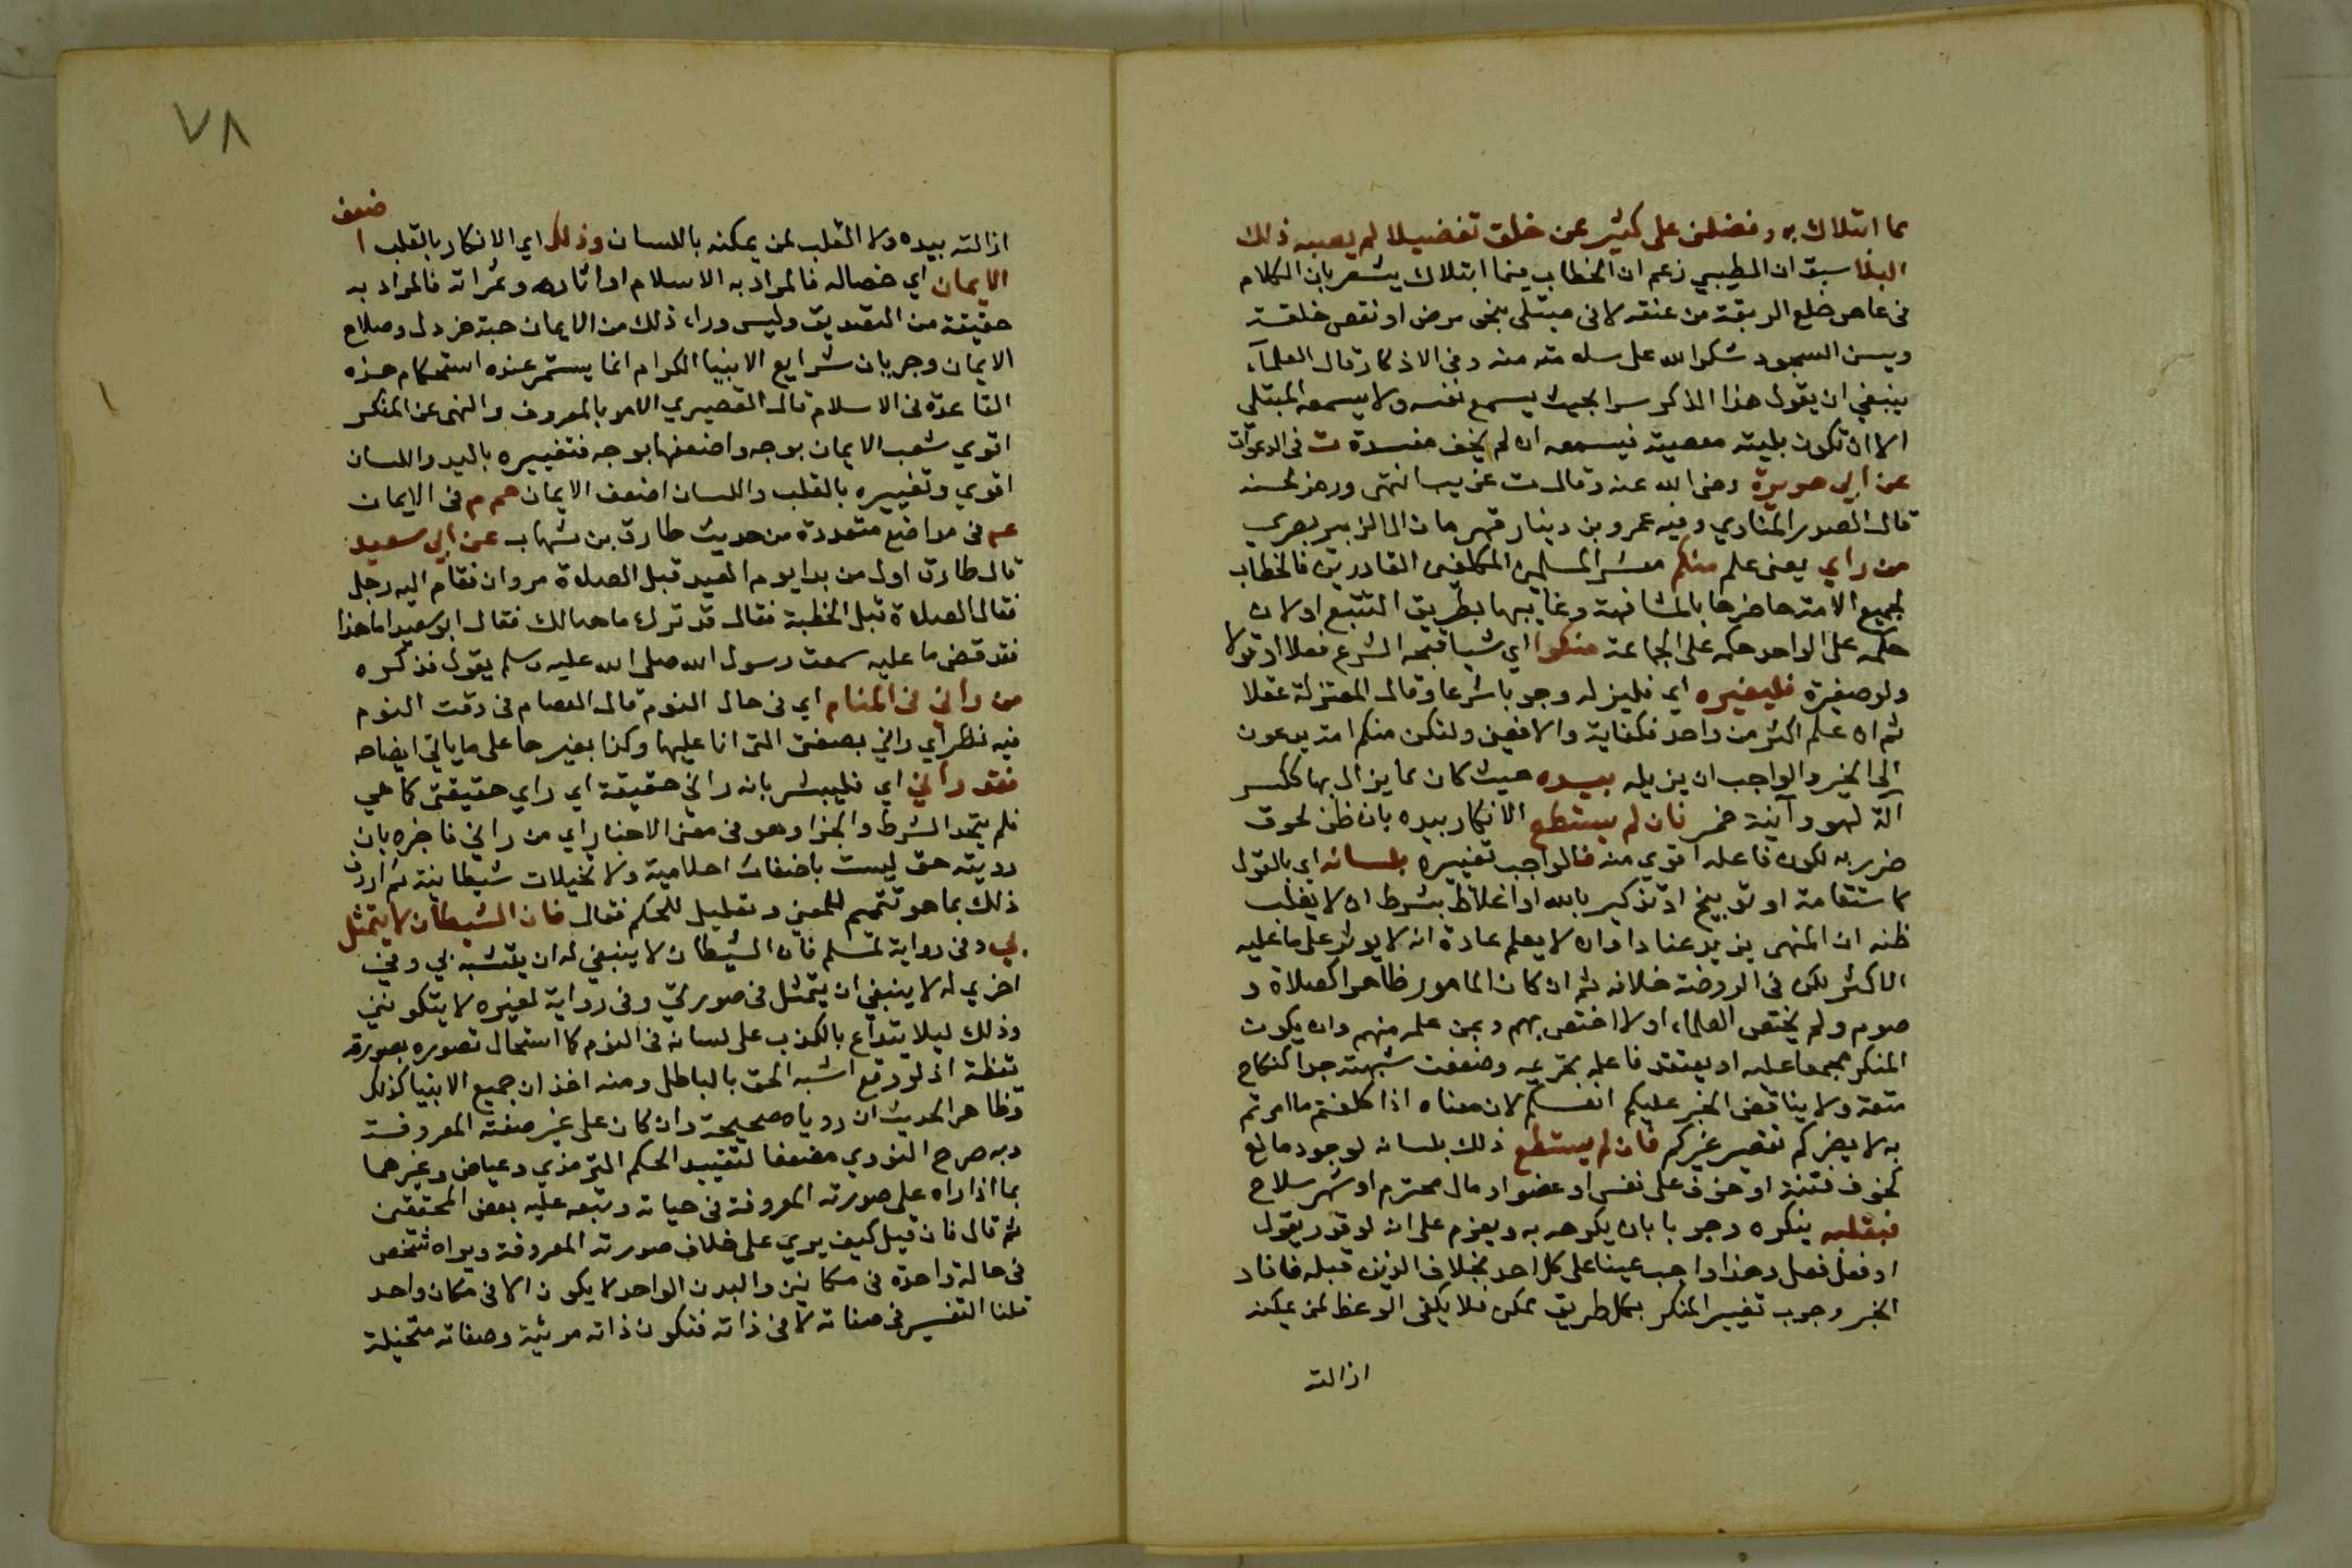 مما ابتلاك به وفضلني على كثير ممن خلق تفضيلا لم يصبه ذلك
البلا سبق ان الطيبي زعم ان الخطاب فيما ابتلاك يشعر بان الكلام
في عاص خلع الربقة من عنقه لا في مبتلى بنحو مرض او نقص خلقة
ويسن السجود شكرا لله على سلامته منه وفي الاذكار قال العلمآء
ينبغي ان يقول هذا الذكر سرا بحيث يسمع نفسه ولا يسمعه المبتلي
الا ان تكون بليته معصية فيسمعه ان لم يخف مفسدة ت في الدعوات
عن ابي هريرة رضي الله عنه وقال ت غريب انتهى ورمز لحسنه
قال الصدر المناوي وفيه عمرو بن دينار قهرمان ال الزبير بصري
من راي يعني علم منكم معشر المسلمين المكلفين القادرين فالخطاب
لجميع الامة حاضرها بالمشافهة وغايبها بطريق التتبع او لان
حكمه على الواحد حكمه على الجماعة منكرا اي شيا قبحه الشرع فعلا او قولا
ولو صغيرة فليغيره اي فليزله وجوبا شرعا وقال المعتزلة عقلا
ثم ان علم اكثر من واحد فكفاية والا فعين ولتكن منكم امة يدعون
الى الخير والواجب ان يزيله بيده حيث كان مما يزال بها ككسر
آلة لهو وآنية خمر فان لم يستطع الانكار بيده بان ظن لحوق
ضرر به لكون فاعله اقوي منه فالواجب تغييره بلسانه اي بالقول
كاستقامة او توبيخ او تذكير بالله او اغلاظ بشرط ان لا يغلب
ظنه ان المنهي يزيد عنادا وان لا يعلم عادة انه لا يوثر على ما عليه
الاكثر لكن في الروضة خلافه ثم ان كان المامور ظاهرا كصلاة و
صوم ولم يختص العلماء او لا اختص بهم وبمن علمه منهم وان يكون
المنكر مجمعا عليه او يعتقد فاعله تحريمه وضعفت شبهته جدا كنكاح
متعة ولا يناقض الخبر عليكم انفسكم لان معناه اذا كلفتم ما امرتم
به لا يضركم تقصير غيركم فان لم يستطع ذلك بلسانه لوجود مانع
كخوف فتنة او خوف على نفس او عضو او مال محترم او شهر سلاح
فبقلبه ينكره وجوبا بان يكرهه به ويعزم على انه لو قدر بقول
او فعل فعل وهذا واجب عينا على كل احد بخلاف الذين قبله فافاد
الخبر وجوب تغيير المنكر بكل طريق ممكن فلا يكفي الوعظ لمن يمكنه
ازالته
٧٨
ازالته بيده ولا القلب لمن يمكنه باللسان وذلك اي الانكار بالقلب اضعف
الايمان اي خصاله فالمراد به الاسلام او اثاره وثمراته فالمراد به
حقيقة من التصديق وليس وراء ذلك من الايمان حبة خردل وصلاح
الايمان وجريان شرايع الانبيا الكرام انما يستمر عنده استحكام هذه
القاعدة في الاسلام قال القصيري الامر بالمعروف والنهي عن المنكر
اقوي شعب الايمان بوجه واضعفها بوجه فتغييره باليد واللسان
اقوي وتغييره بالقلب واللسان اضعف الايمان حم م في الايمان
عم في مواضع متعددة من حديث طارق بن شهاب عن ابي سعيد
قال طارق اول من بدا يوم العيد قبل الصلاة مروان فقام اليه رجل
فقال الصلاة قبل الخطبة فقال قد ترك ما هنالك فقال ابو سعيد اما هذا
فقد قضى ما عليه سمعت رسول الله صلى الله عليه وسلم يقول فذكره
من رآني في المنام اي في حال النوم قال العصام في وقت النوم
فيه نظر اي راني بصفتي التي انا عليها وكذا بغيرها على ما ياتي ايضاحه
فقد رآني اي فليبشر بانه راني حقيقة اي راي حقيقتي كما هي
فلم يتحد الشرط والجزا وهو في معنى الاخبار اي من راني فاخبره بان
رويته حق ليست باضغاث احلامية ولا تخيلات شيطانية ثم اردف
ذلك بما هو تتميم للمعنى وتعليل للحكم فقال فان الشيطان لا يتمثل
بي وفي رواية لمسلم فان الشيطان لا ينبغي له ان يتشبه بي وفي
اخري له لا ينبغي ان يتمثل في صورتي وفي رواية لغيره لا يتكونني
وذلك ليلا يتدرع بالكذب على لسانه في النوم كما استحال تصوره بصورته
يقظة اذ لو وقع اشبه الحق بالباطل ومنه اخذ ان جميع الانبيا كذلك
وظاهر الحديث ان روياه صحيحة وان كان على غير صفته المعروفة
وبه صرح النووي مضعفا لتقييد الحكيم الترمذي وعياض وغيرهما
بما اذا راه على صورته المعروفة في حياته وتبعه عليه بعض المحققين
ثم قال فان قيل كيف يري على خلاف صورته المعروفة ويراه شخص
في حالة واحدة في مكانين والبدن الواحد لا يكون الا في مكان واحد
قلنا التغيير في صفاته لا في ذاته فتكون ذاته مرئية وصفاته متخيلة